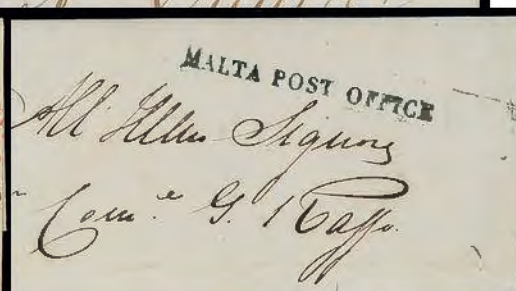 MALTA POST OFFICE
All Illmo Signore
Com.e G. Raffo.